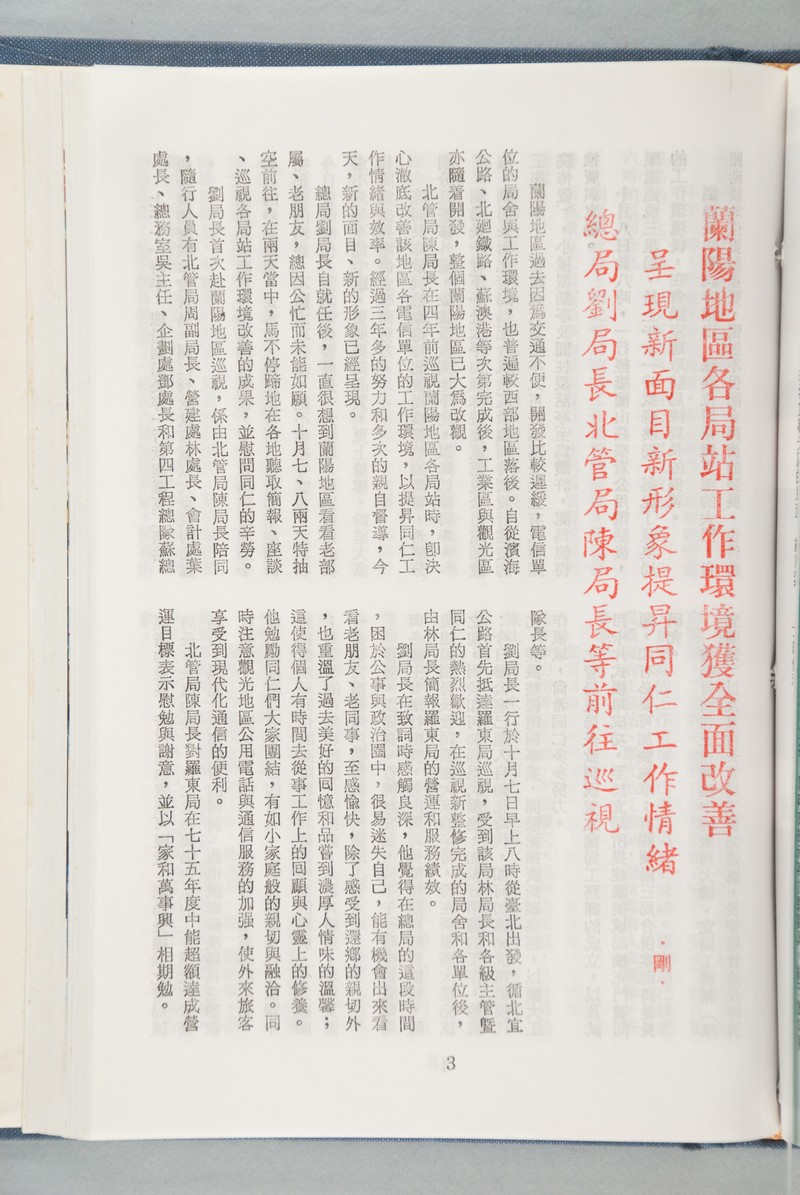 蘭陽地區各局站工作環境獲全面改善
呈現新面目新形象提昇同仁工作情緒
總局劉局長北管局陳局長等前往巡視
·剛·
蘭陽地區過去因為交通不便，開發比較遲緩，電信單
位的局舍與工作環境，也普遍較西部地區落後。自從濱海
公路、北廻鐵路、蘇澳港等次第完成後，工業區與觀光區
亦隨着開發，整個蘭陽地區已大為改觀。
北管局陳局長在四年前巡視蘭陽地區各局站時，卽決
心澈底改善該地區各電信單位的工作環境，以提昇同仁工
作情緒與效率。經過三年多的努力和多次的親自督導，今
天，新的面目、新的形象已經呈現。
總局劉局長自就任後，一直很想到蘭陽地區看看老部
屬、老朋友，總因公忙而未能如願。十月七、八兩天特抽
空前往，在兩天當中，馬不停蹄地在各地聽取簡報、座談
、巡視各局站工作環境改善的成果，並慰問同仁的辛勞。
劉局長首次赴蘭陽地區巡視，係由北管局陳局長陪同
，隨行人員有北管局周副局長、營建處林處長、會計處葉
處長、總務室吳主任、企劃處鄧處長和第四工程總隊蘇總
隊長等。
劉局長一行於十月七日早上八時從臺北出發，循北宜
公路首先抵達羅東局巡視，受到該局林局長和各級主管曁
同仁的熱烈歡迎，在巡視新整修完成的局舍和各單位後，
由林局長簡報羅東局的營運和服務績效。
劉局長在致詞時感觸良深，他覺得在總局的這段時間
，困於公事與政治圈中，很易迷失自己，能有機會出來看
看老朋友、老同事，至感愉快，除了感受到還鄉的親切外
，也重溫了過去美好的回憶和品嘗到濃厚人情味的溫馨；
這使得個人有時間去從事工作上的回顧與心靈上的修養。
他勉勵同仁們大家團結，有如小家庭般的親切與融洽。同
時注意觀光地區公用電話與通信服務的加强，使外來旅客
享受到現代化通信的便利。
北管局陳局長對羅東局在七十五年度中能超額達成營
運目標表示慰勉與謝意，並以「家和萬事興」相期勉。
3